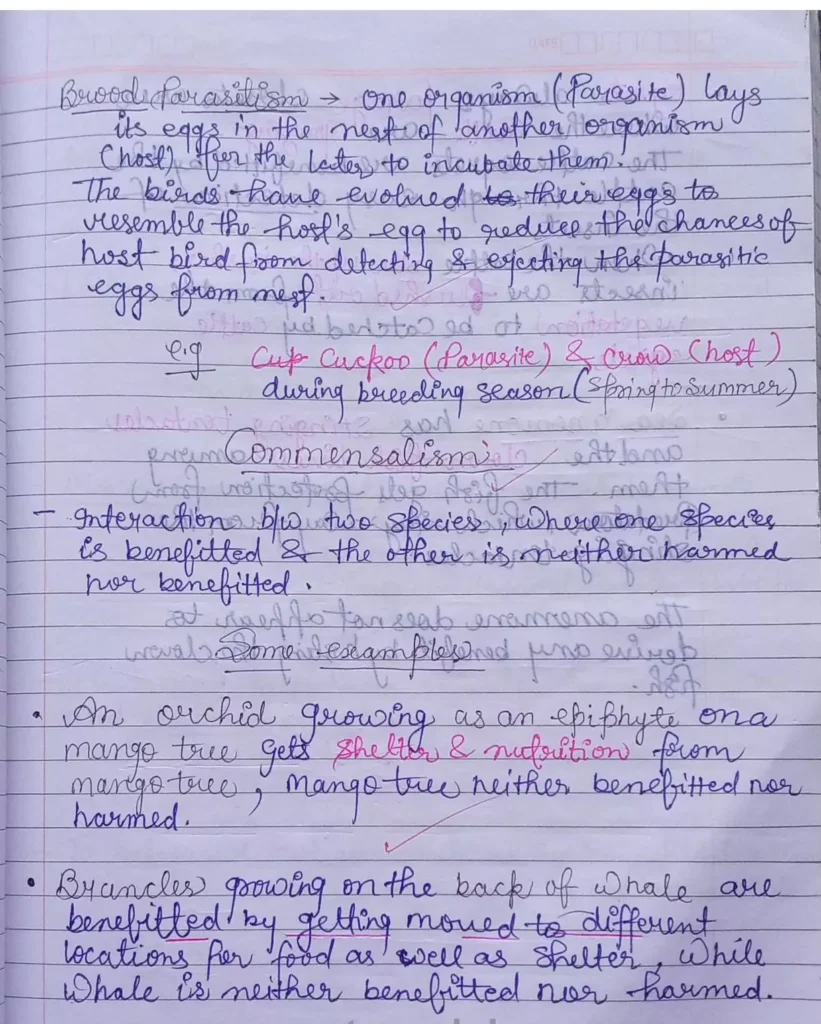 Brood Parasitism → One organism (Parasite) lays
its eggs in the nest of another organism
(host) for the later to incubate them.
The birds have evolved to their eggs to
resemble the host's egg to reduce the chances of
host bird from detecting & ejecting the parasitic
eggs from nest.
e.g Cup Cuckoo (Parasite) & crow (host)
during breeding season (Spring to Summer)
Commensalism
- Interaction b/w two species, where one species
is benefitted & the other is neither harmed
nor benefitted.
Some examples
• An orchid growing as an epiphyte on a
mango tree gets shelter & nutrition from
mango tree, mango tree neither benefitted nor
harmed.
• Brancles growing on the back of whale are
benefitted by getting moved to different
locations for food as well as shelter, while
whale is neither benefitted nor harmed.